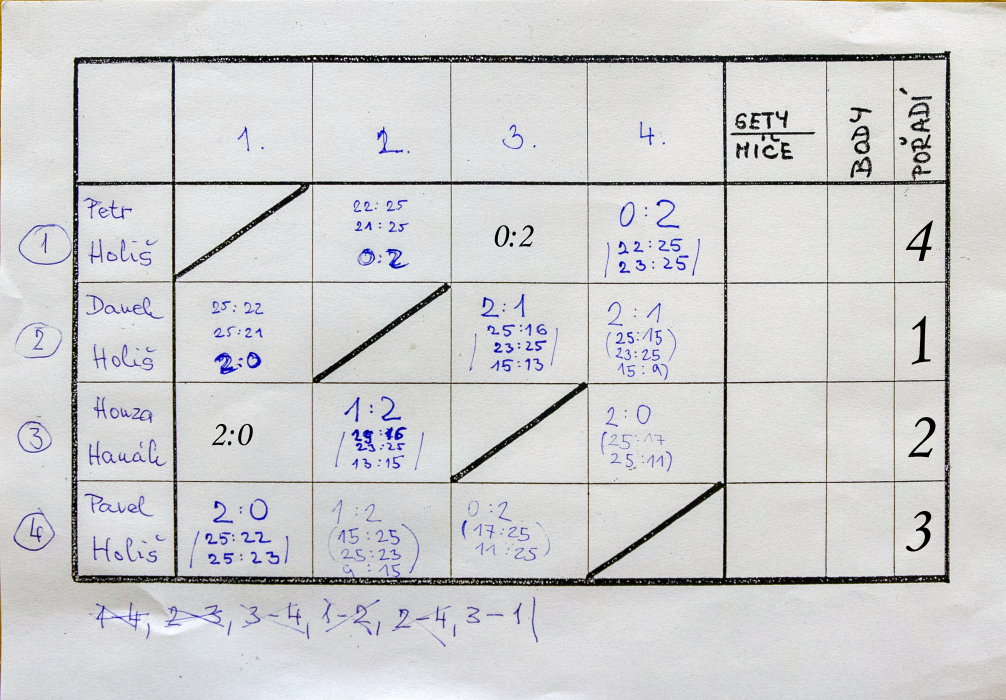 1. 2. 3. 4. SETY BODY POŘADÍ
MÍČE
1 Petr 22:25 0:2 0:2 4
21:25 (22:25
Holiš 0:2 23:25)
2 Daneh 25:22 2:1 2:1 1
25:21 (25:16 (25:15)
Holiš 2:0 23:25 23:25
15:13) 15:9)
3 Honza 2:0 1:2 2:0 2
(25:17
Hanák 23:25 25:11)
13:15)
4 Pavel 2:0 1:2 0:2 3
(25:22 (15:25 (17:25
Holiš 25:23) 25:23 11:25)
9:15)
1-4, 2-3, 3-4, 1-2, 2-4, 3-1